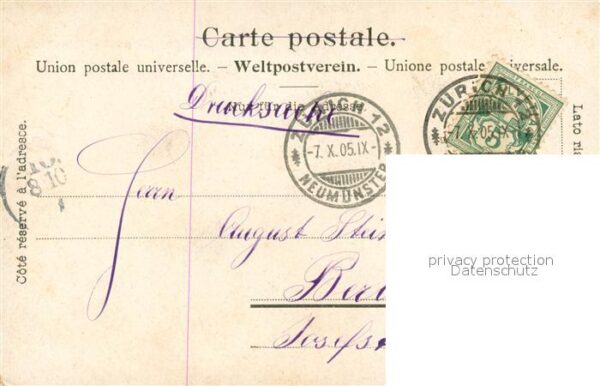 Carte postale.
Union postale universelle. – Weltpostverein. – Unione postale universale.
Nur für die Adresse.
Drucksache
ZÜRICH 12
-7. X. 05. IX-
NEUMÜNSTER
ZÜRICH 12
-7. X. 05. IX
5
Côté réservé à l'adresse.
8 10
Lato ris
Herrn
August Stein
Berl
Josefs
privacy protection
Datenschutz